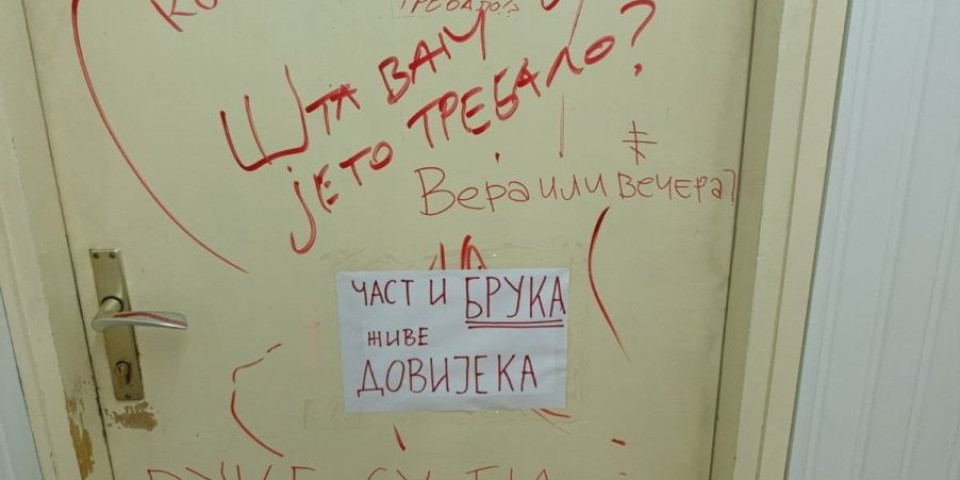 ТРЕБАЛО?
ШТА ВАМ
ЈЕ ТО ТРЕБАЛО?
Вера или вечера?
ЧАСТ И БРУКА
ЖИВЕ
ДОВИЈЕКА